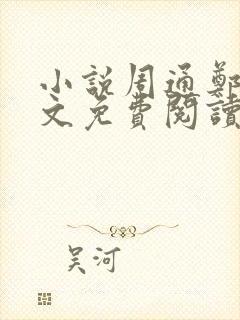 小説周通鄭
文免費閱讀
吴河